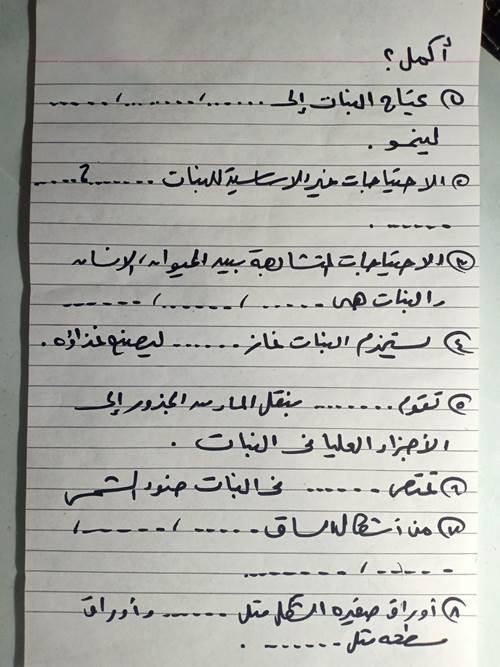 أكمل؟
① يحتاج النبات إلى ....../......../......
لينمو .
② الاحتياجات غير الاساسية للنبات .......؟......
...... .
③ الاحتياجات المتشابهة بين الحيوان، الانسان
والنبات هى ....../....../......
④ يستخدم النبات غاز ...... ليصنع غذاؤه .
⑤ تقوم ........ بنقل الماء من الجذور إلى
الأجزاء العليا فى النبات .
⑥ تمتص ...... فى النبات ضوء الشمس
⑦ من أشكال الساق ....../....../
....../........
⑧ أوراق صغيره الشكل مثل ...... وأوراق
مسطحه مثل ....... .